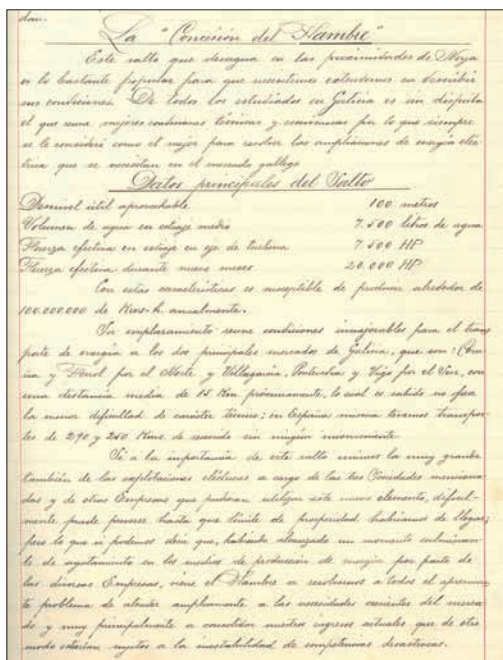 dan.
La "Concesión del Hambre"
Este salto que desagua en las proximidades de Noya
es lo bastante popular para que necesitemos extendernos en describir
sus condiciones. De todos los estudiados en Galicia es sin disputa
el que reune mejores condiciones técnicas y economicas por lo que siempre
se le consideró como el mejor para resolver las ampliaciones de energia eléc-
trica que se necesitan en el mercado gallego
Datos principales del Salto
Desnivel útil aprovechable 100 metros
Volumen de agua en estiaje medio 7.500 litros de agua
Fuerza efectiva en estiaje en eje de turbina 7.500 HP
Fuerza efectiva durante nueve meses 20.000 HP
Con estas caracteristicas es susceptible de producir alrededor de
100.000.000 de Kws-h. anualmente.
Su emplazamiento reune condiciones inmejorables para el trans
porte de energia a los dos principales mercados de Galicia, que son: Coru
ña y Ferrol por el Norte y Villagarcia, Pontevedra y Vigo por el Sur, con
una distancia media de 85 Km. proximamente, lo cual es sabido no ofrece
la menor dificultad de carácter técnico; en España misma tenemos transpor-
tes de 240 y 250 Kms. de recorrido sin ningún inconveniente
Si a la importancia de este salto unimos la muy grande
también de las explotaciones eléctricas a cargo de las tres Sociedades menciona
das y de otras Empresas que pudieran utilizar este nuevo elemento, dificil-
mente puede preverse hasta que límite de prosperidad habríamos de llegar;
pero lo que si podemos decir que, habiendo alcanzado un momento culminan-
te de agotamiento en los medios de producción de energia por parte de
las diversas Empresas, viene el Hambre a resolvernos a todos el apremian
te problema de atender ampliamente a las necesidades crecientes del merca
do y muy principalmente a consolidar nuestros ingresos actuales que de otro
modo estarian sujetos a la inestabilidad de competencias desastrosas.